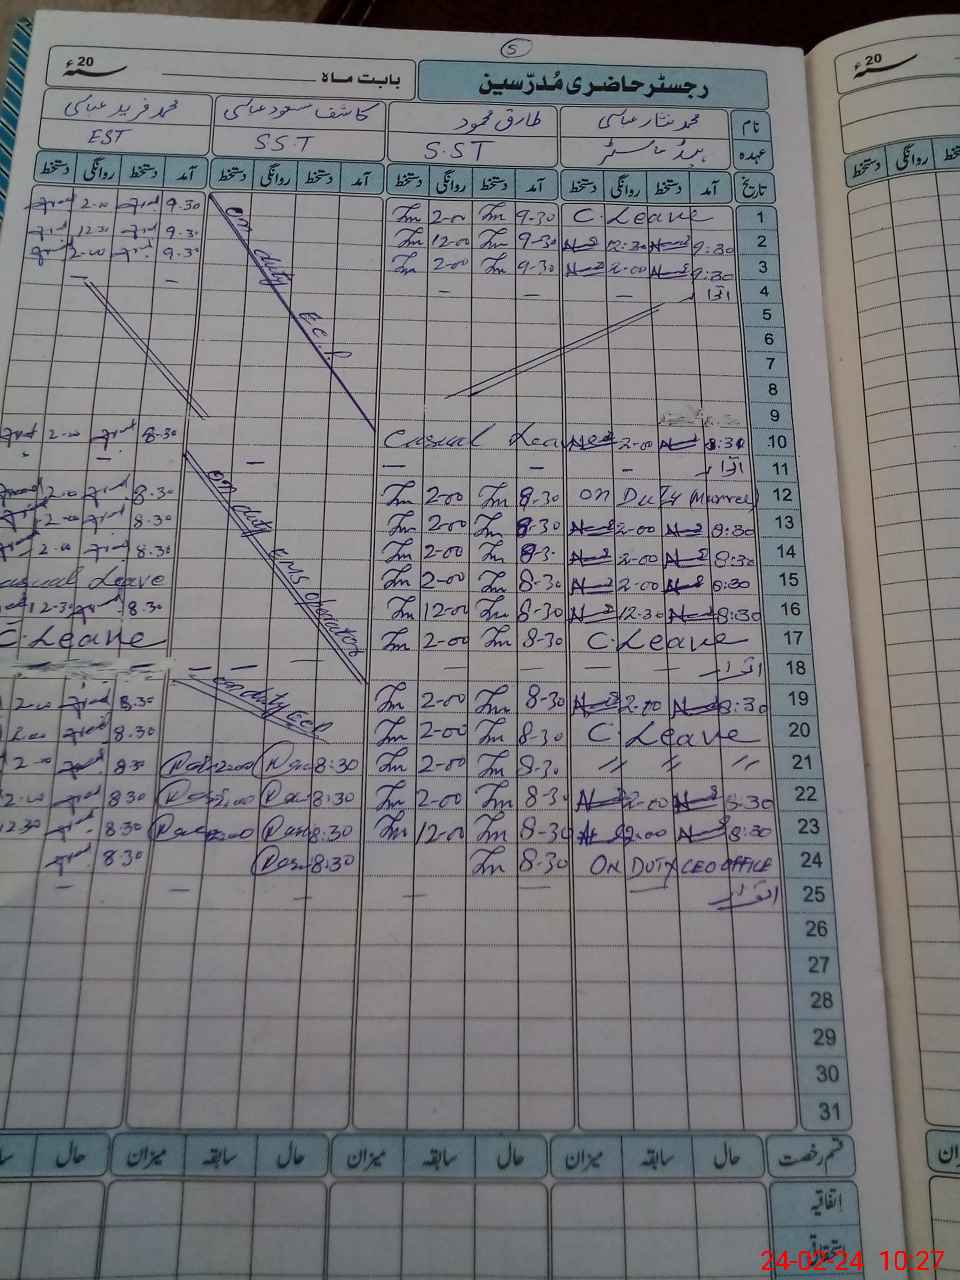 5
رجسٹر حاضری مُدرّسین بابت ماہ ________ 20 سنہء
نام محمد نثار عباسی طارق محمود کاشف مسعود عباسی محمد فرید عباسی
عہدہ ہیڈ ماسٹر S.ST S.S.T EST
تاریخ آمد دستخط روانگی دستخط آمد دستخط روانگی دستخط آمد دستخط روانگی دستخط آمد دستخط روانگی دستخط
1 C. Leave 9-30 2-00 on duty E.C.P 9.30 2-00
2 9:30 12:30 9-30 12-00 9.30 12.30
3 9:30 2-00 9-30 2-00 9.30 2-00
4 اتوار — — — — —
5
6
7
8
9
10 8:30 2-00 Casual Leave 8-30 2-00
11 اتوار — — — — —
12 ON DUTY (Murree) 8-30 2-00 on duty EMS operator 8.30 2-00
13 8:30 2-00 8-30 2-00 8.30 2-00
14 8:30 2-00 8-3. 2-00 8.30 2-00
15 8:30 2-00 8-30 2-00 Casual Leave
16 8:30 12.30 8-30 12-00 8.30 12-30
17 C. Leave 8-30 2-00 C. Leave
18 اتوار — — — — — — —
19 8:30 2-00 8-30 2-00 on duty ECP 8.30 2-00
20 C. Leave 8-30 2-00 8.30 2.00
21 〃 〃 〃 8-30 2-00 8:30 2:00 8.30 2-00
22 8:30 2-00 8-30 2-00 8:30 2:00 8.30 2-00
23 8:30 2:00 8-30 12-00 8:30 2:00 8.30 12.30
24 ON DUTY CEO OFFICE 8-30 8:30 8.30
25 اتوار — — — — —
26
27
28
29
30
31
قسم رخصت حال سابقہ میزان حال سابقہ میزان حال سابقہ میزان حال
اتفاقیہ
استحقاقی
20 سنہء
دستخط روانگی
میزان
24-02-24 10:27